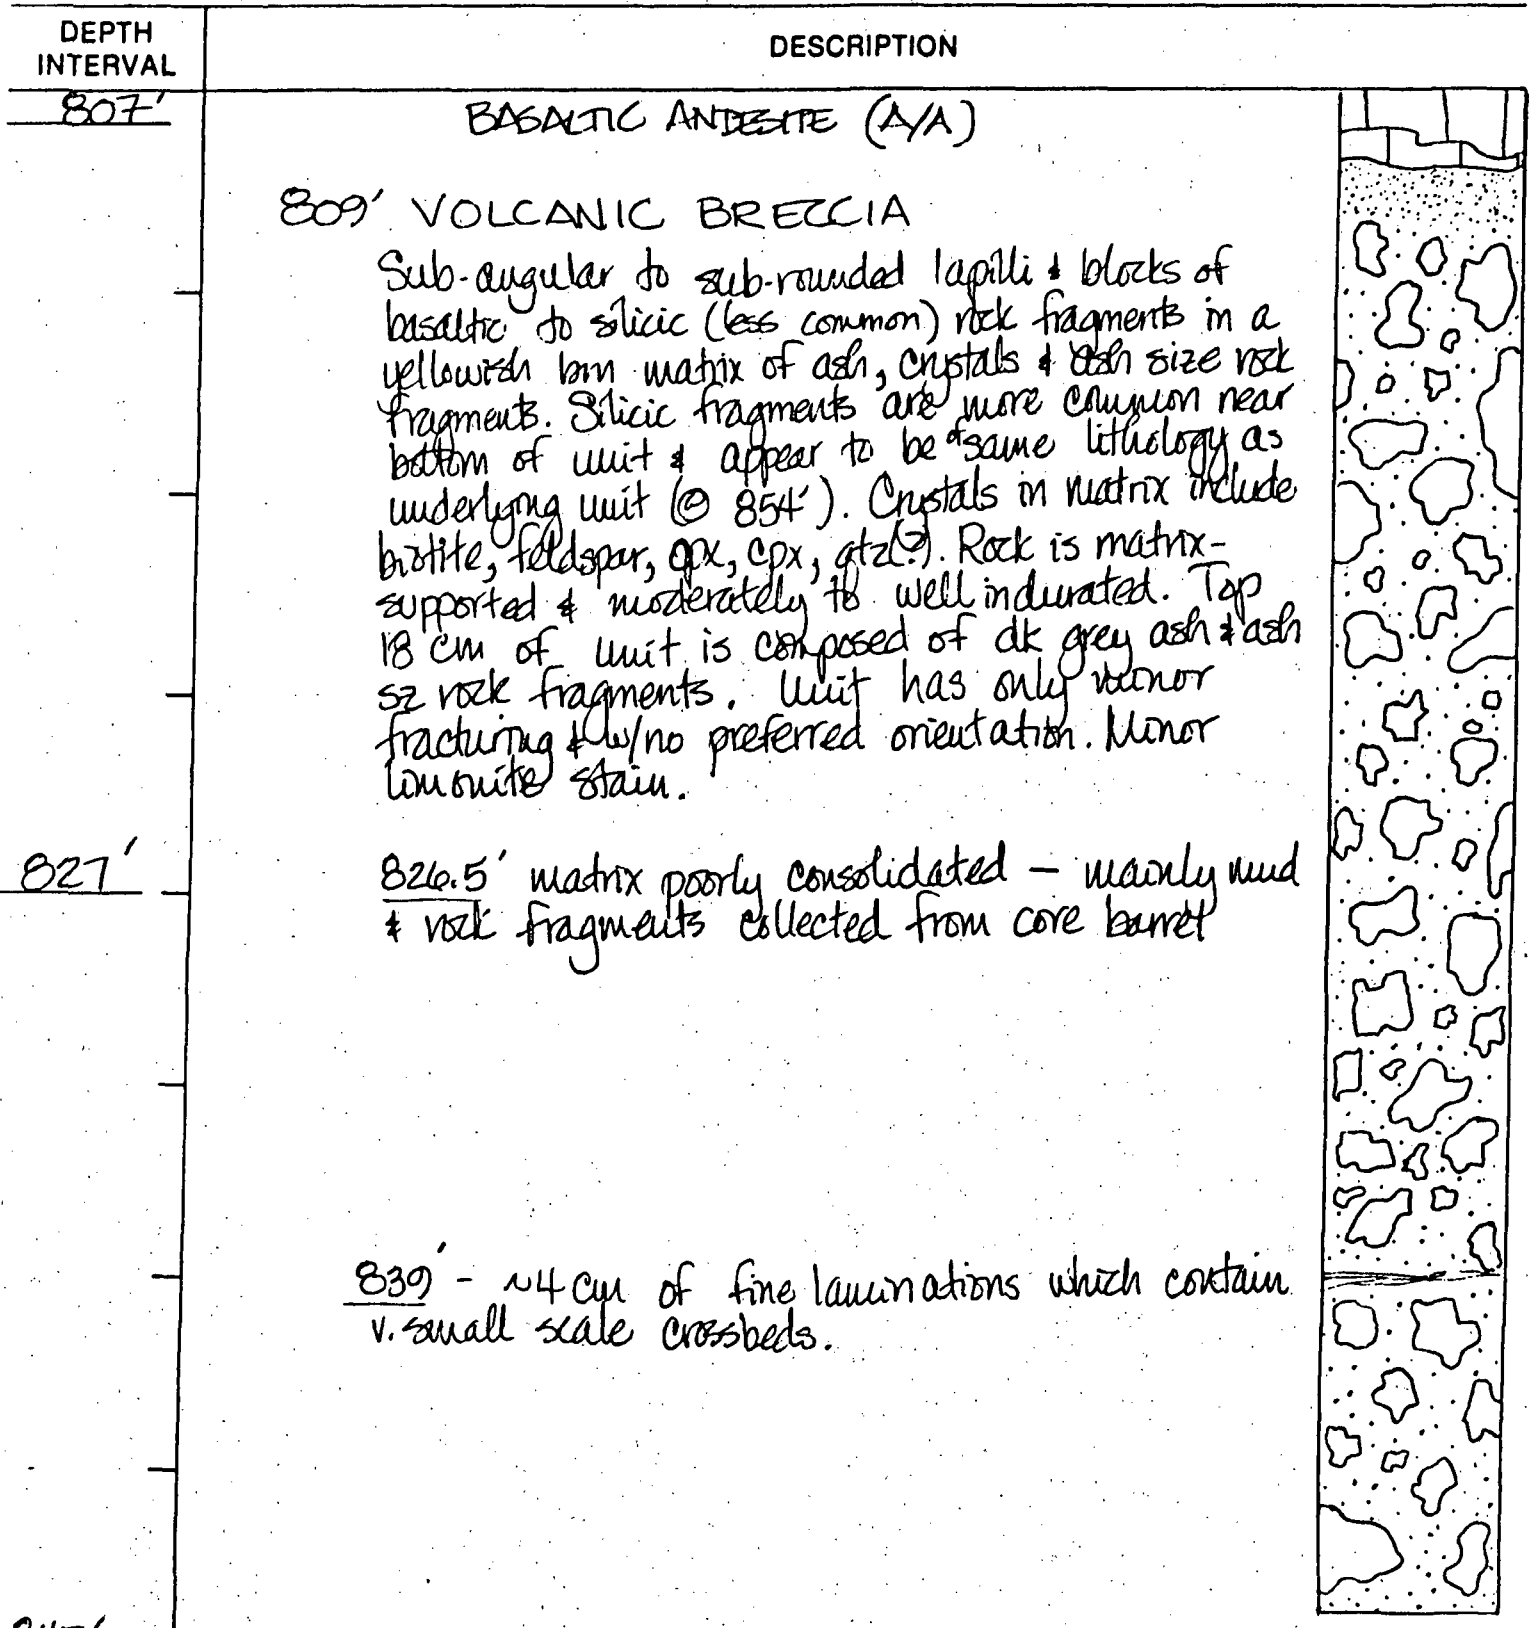 DEPTH INTERVAL
DESCRIPTION
807'
BASALTIC ANDESITE (A/A)
809' VOLCANIC BRECCIA
Sub-angular to sub-rounded lapilli & blocks of
basaltic to silicic (less common) rock fragments in a
yellowish brn matrix of ash, crystals & ash size rock
fragments. Silicic fragments are more common near
bottom of unit & appear to be of same lithology as
underlying unit (@ 854'). Crystals in matrix include
biotite, feldspar, opx, cpx, qtz(?). Rock is matrix-
supported & moderately to well indurated. Top
18 cm of unit is composed of dk grey ash & ash
sz rock fragments. Unit has only minor
fracturing & w/no preferred orientation. Minor
limonite stain.
827'
826.5' matrix poorly consolidated – mainly mud
& rock fragments collected from core barrel
839' - ~4 cm of fine laminations which contain
v. small scale crossbeds.